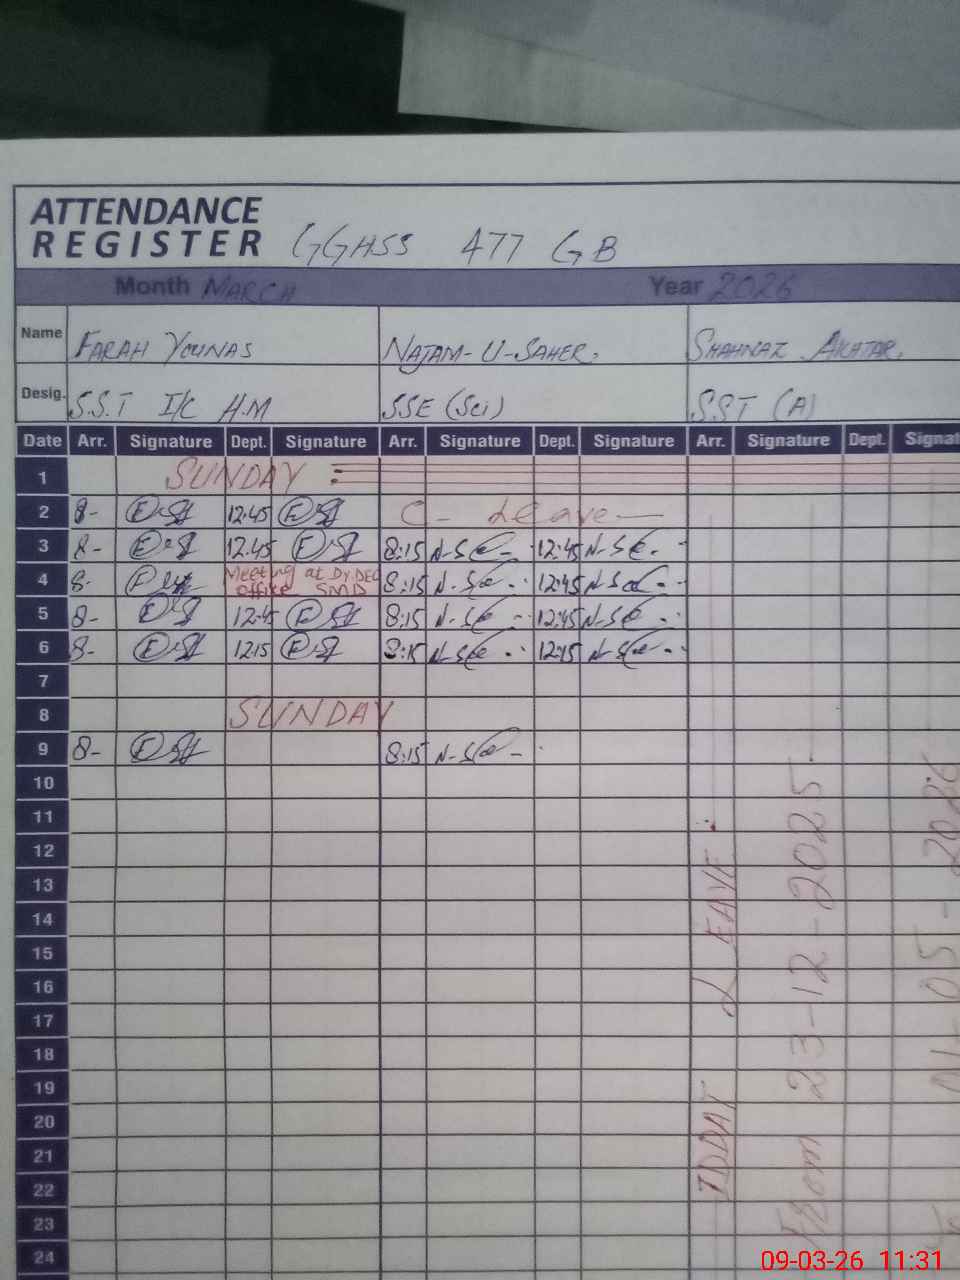 ATTENDANCE
REGISTER GGHSS 477 GB
Month MARCH Year 2026
Name FARAH YOUNAS NAJAM-U-SAHER, SHAHNAZ AKHTAR,
Desig. S.S.T I/C H.M SSE (Sci) SST (A)
Date Arr. Signature Dept. Signature Arr. Signature Dept. Signature Arr. Signature Dept. Signat
1 SUNDAY
2 8- 12.45 C- Leave-
3 8- 12.45 8:15 N-S 12:45 N-S
4 8- Meeting at Dy.DEO office SMD 8:15 N-S 12:45 N-S
5 8- 12:45 8:15 N-S 12:45 N-S
6 8- 12.15 8:15 N-S 12:15 N-S
7
8 SUNDAY
9 8- 8:15 N-S
10
11
12
13
14
15
16
17
18
19
20
21
22
23
24
IDDAT LEAVE
From 23-12-2025
01-05-2026
09-03-26 11:31